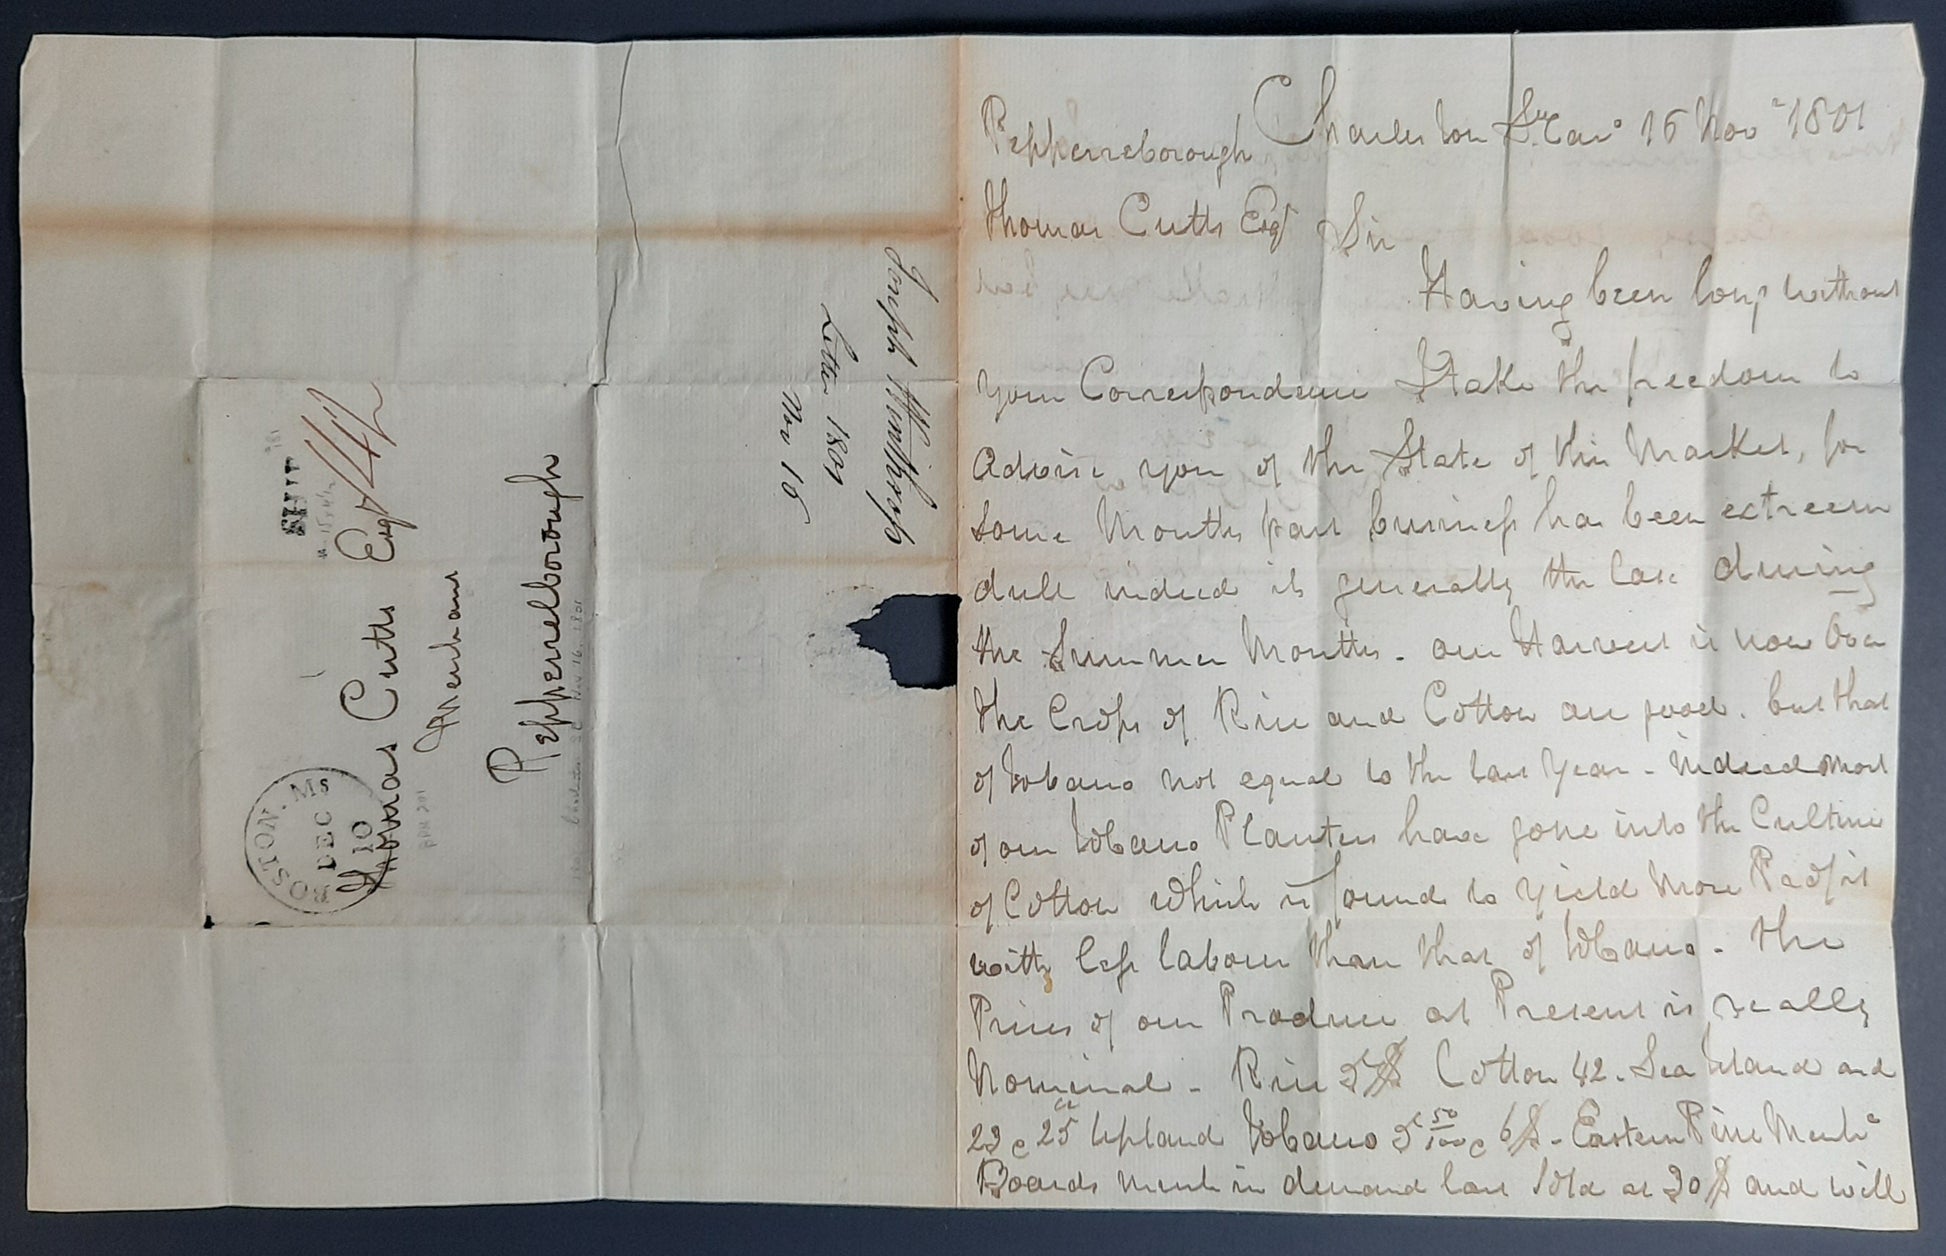 Charleston So. Caro 16 Nov 1801
Pepperreborough
Thomas Cutts Esqr Sir
Having been long without
your Correspondence I take the freedom to
advise you of the State of this Market, for
some Months past business has been extreem
dull indeed it generally the Case during
the Summer Months - our Harvest is now Over
the Crops of Rice and Cotton are good. but that
of Tobacco not equal to the last year - indeed most
of our Tobacco Planters have gone into the Culture
of Cotton which is found to yield More Profit
with less labour than that of Tobacco - The
Prices of our Produce at Present is really
Nominal - Rice 5$ Cotton 42 - Sea Island and
23 a 25 cts Upland Tobacco 5 50/100 a 6$ - Eastern Pine Mercha
Boards much in demand last Sold at 30$ and will
Joseph Winthrop's
Letter 1801
Nov 16
SHIP
Thomas Cutts Esqr
Merchant
Pepperrelborough
BOSTON. Ms
DEC
10